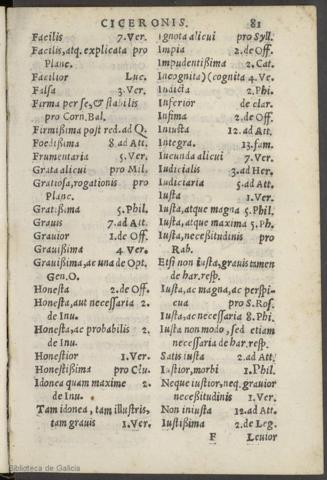 CICERONIS. 81
Facilis 7. Ver.
Facilis, atq. explicata pro
Planc.
Facilior Luc.
Falsa 3. Ver.
Firma per se, & stabilis
pro Corn. Bal.
Firmißima post red. ad Q.
Foedißima 8. ad Att.
Frumentaria 5. Ver.
Grata alicui pro Mil.
Gratiosa, rogationis pro
Planc.
Gratißima 5. Phil.
Grauis 7. ad Att.
Grauior 1. de Off.
Grauißima 4. Ver.
Grauißima, ac una de Opt.
Gen. O.
Honesta 2. de Off.
Honesta, aut necessaria 2.
de Inu.
Honesta, ac probabilis 2.
de Inu.
Honestior 1. Ver.
Honestißima pro Clu.
Idonea quam maxime 2.
de Inu.
Tam idonea, tam illustris,
tam grauis 1. Ver.
Ignota alicui pro Syll.
Impia 2. de Off.
Impudentißima 2. Cat.
Incognita) (cognita 4. Ve.
Iudicia 2. Phi.
Inferior de clar.
Infima 2. de Off.
Iniusta 12. ad Att.
Integra. 13. fam.
Iucunda alicui 7. Ver.
Iudicialis 3. ad Her.
Iudiciaria 5. ad Att.
Iusta 1. Ver.
Iusta, atque magna 5. Phil.
Iusta, atque maxima 5. Ph.
Iusta, neceßitudinis pro
Rab.
Etsi non iusta, grauis tamen
de har. resp.
Iusta, ac magna, ac perspi-
cua pro S. Ros.
Iusta, ac necessaria 8. Phi.
Iusta non modo, sed etiam
necessaria de har. resp.
Satis iusta 2. ad Att.
Iustior, morbi 1. Phil.
Neque iustior, neq. grauior
neceßitudinis 1. Ver.
Non iniusta 12. ad Att.
Iustißima 2. de Leg.
F Leuior
Biblioteca de Galicia